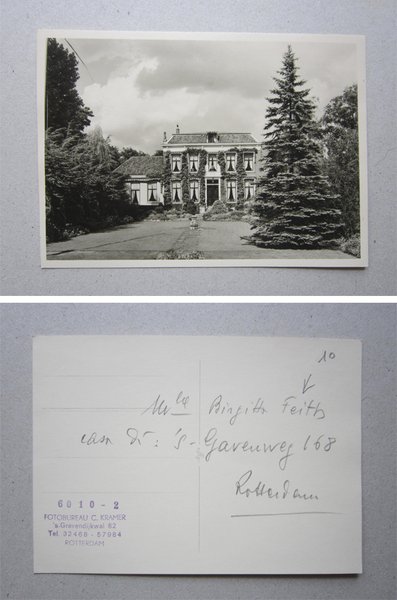 10
Mr
Birgitta Feith
casa di: 's-Gavenweg 168
Rotterdam
6010-2
FOTOBUREAU C. KRAMER
's-Gravendijkwal 62
Tel. 32468 - 57984
ROTTERDAM